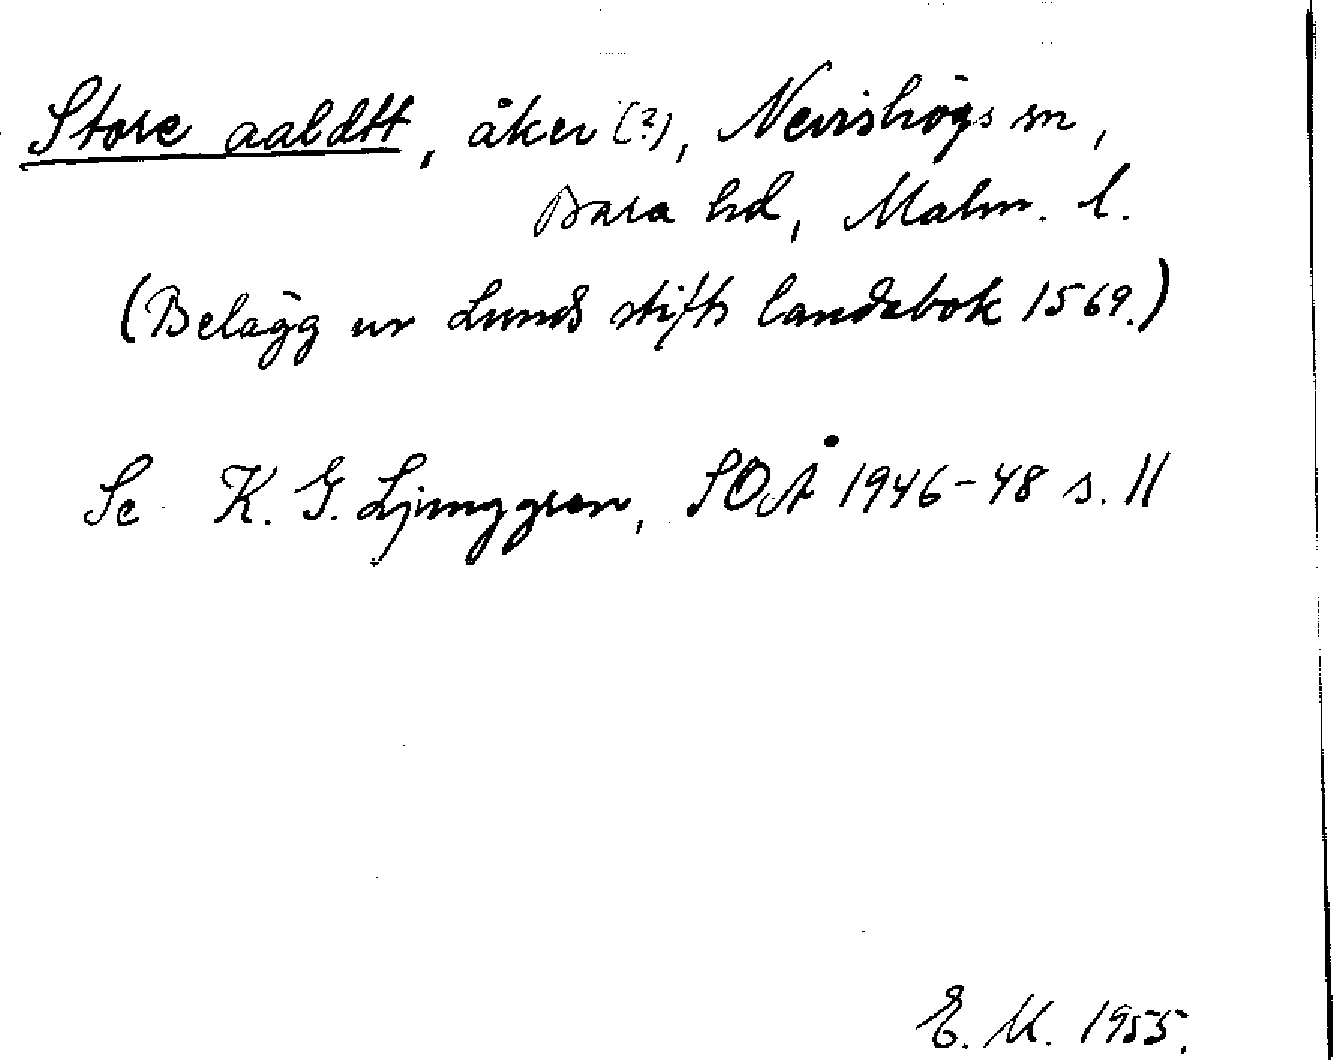 Store aaldtt, åker (?), Nevishögs sn,
Bara hd, Malm. l.
(Belägg ur Lunds stifts landebok 1569.)
Se K. G. Ljunggren, SOÅ 1946-48 s. 11
E. M. 1955.